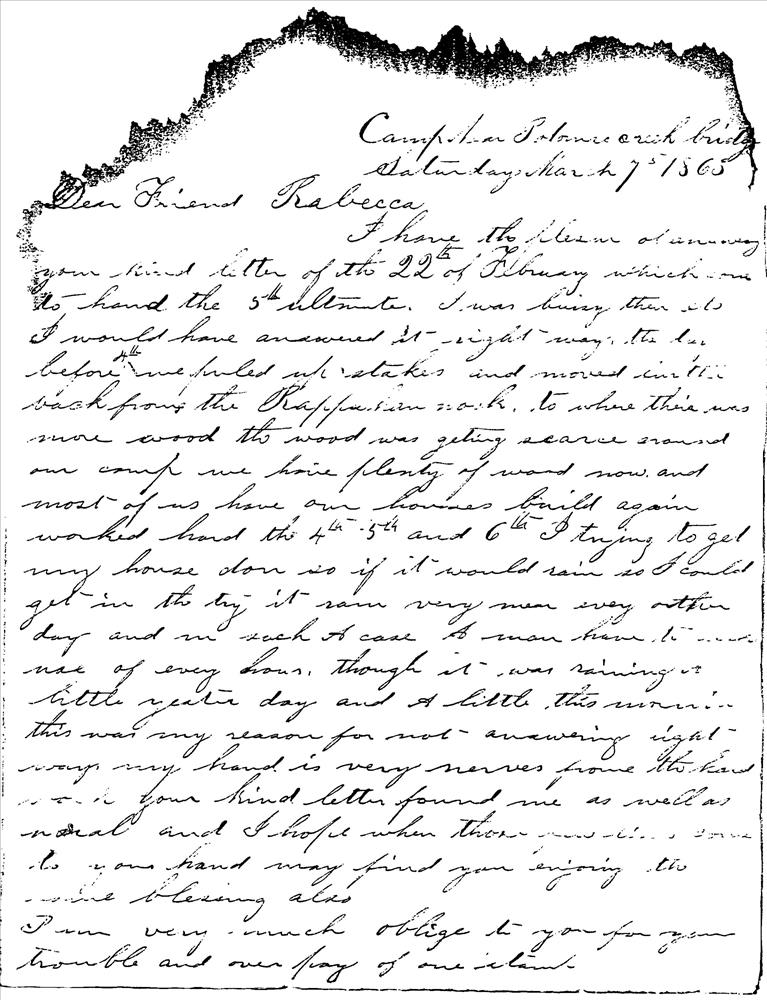 Camp Near Potomac creek bridge
Saturday March 7th 1863
Dear Friend Rabecca
I have the plesur of
your kind letter of the 22th of Fibruary which
to hand the 5th ultmate. I was buisy then
I would have answered it right way. the
before 4th we puled up stakes and moved
back from the to where there was
more wood the wood was geting scarce around
our camp we have plenty of wood now. and
most of us have our houses build again
worked hard the 4th 5th and 6th I trying to get
my house don so if it would rain so I could
get in the try it rain very near evry other
day and in such A case A man have to
use of every hour. though it was raining
little yester day and A little this
this was my reason for not answering right
ways my hand is very nerves frome the hard
your kind letter found me as well as
and I hope when those
to your hand may find you enjoying the
blesing also
I am very much oblige to you for your
trouble and over pay of one